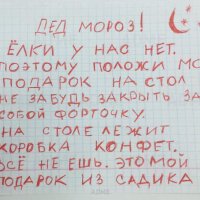 ДЕД МОРОЗ!
ЁЛКИ У НАС НЕТ.
ПОЭТОМУ ПОЛОЖИ МО
ПОДАРОК НА СТОЛ
НЕ ЗАБУДЬ ЗАКРЫТЬ ЗА
СОБОЙ ФОРТОЧКУ.
НА СТОЛЕ ЛЕЖИТ
КОРОБКА КОНФЕТ.
ВСЁ НЕ ЕШЬ. ЭТО МОЙ
ПОДАРОК ИЗ САДИКА